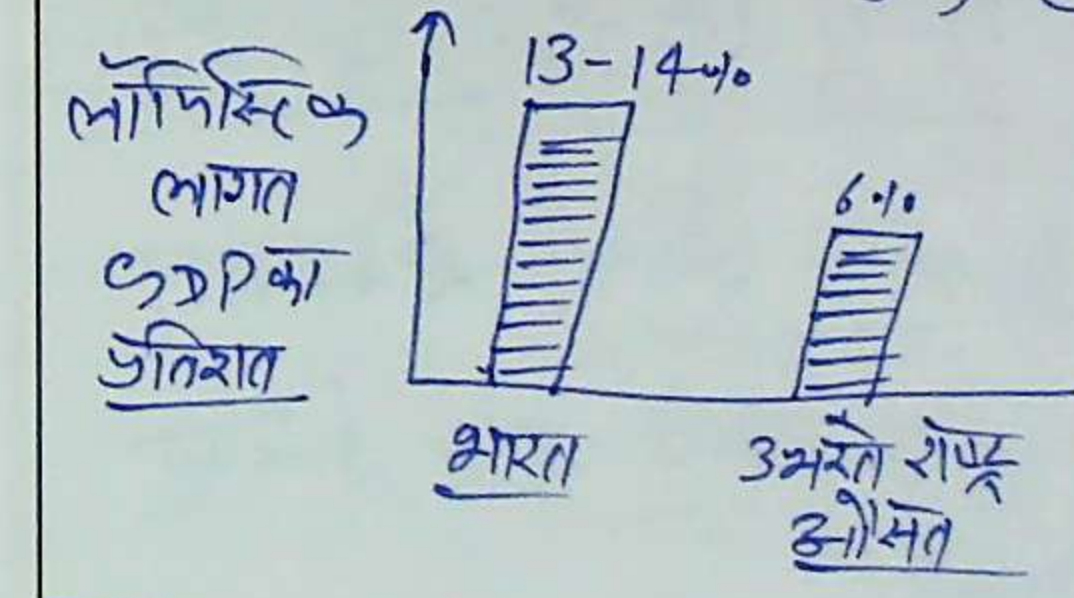 लॉजिस्टिक
लागत
GDP का
प्रतिशत
13-14%
6%
भारत
उभरते राष्ट्र
औसत